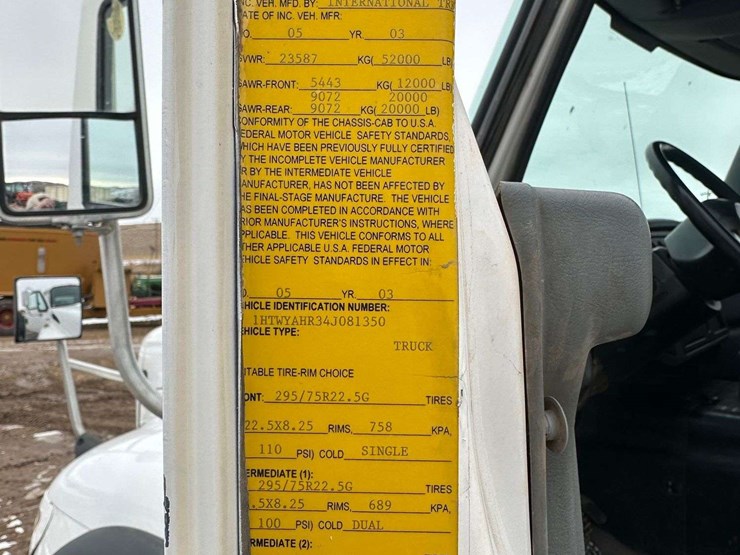 C. VEH. MFD. BY: INTERNATIONAL TR
ATE OF INC. VEH. MFR:
O. 05 YR. 03
GVWR: 23587 KG( 52000 LB
GAWR-FRONT: 5443 KG( 12000 LB
9072 20000
GAWR-REAR: 9072 KG( 20000 LB)
CONFORMITY OF THE CHASSIS-CAB TO U.S.A.
EDERAL MOTOR VEHICLE SAFETY STANDARDS,
WHICH HAVE BEEN PREVIOUSLY FULLY CERTIFIED
Y THE INCOMPLETE VEHICLE MANUFACTURER
R BY THE INTERMEDIATE VEHICLE
ANUFACTURER, HAS NOT BEEN AFFECTED BY
HE FINAL-STAGE MANUFACTURE. THE VEHICLE
AS BEEN COMPLETED IN ACCORDANCE WITH
RIOR MANUFACTURER'S INSTRUCTIONS, WHERE
PPLICABLE. THIS VEHICLE CONFORMS TO ALL
THER APPLICABLE U.S.A. FEDERAL MOTOR
EHICLE SAFETY STANDARDS IN EFFECT IN:
O 05 YR. 03
EHICLE IDENTIFICATION NUMBER:
1HTWYAHR34J081350
EHICLE TYPE:
TRUCK
ITABLE TIRE-RIM CHOICE
ONT: 295/75R22.5G TIRES
22.5X8.25 RIMS, 758 KPA,
110 PSI) COLD SINGLE
ERMEDIATE (1):
295/75R22.5G TIRES
.5X8.25 RIMS, 689 KPA,
100 PSI) COLD DUAL
RMEDIATE (2):